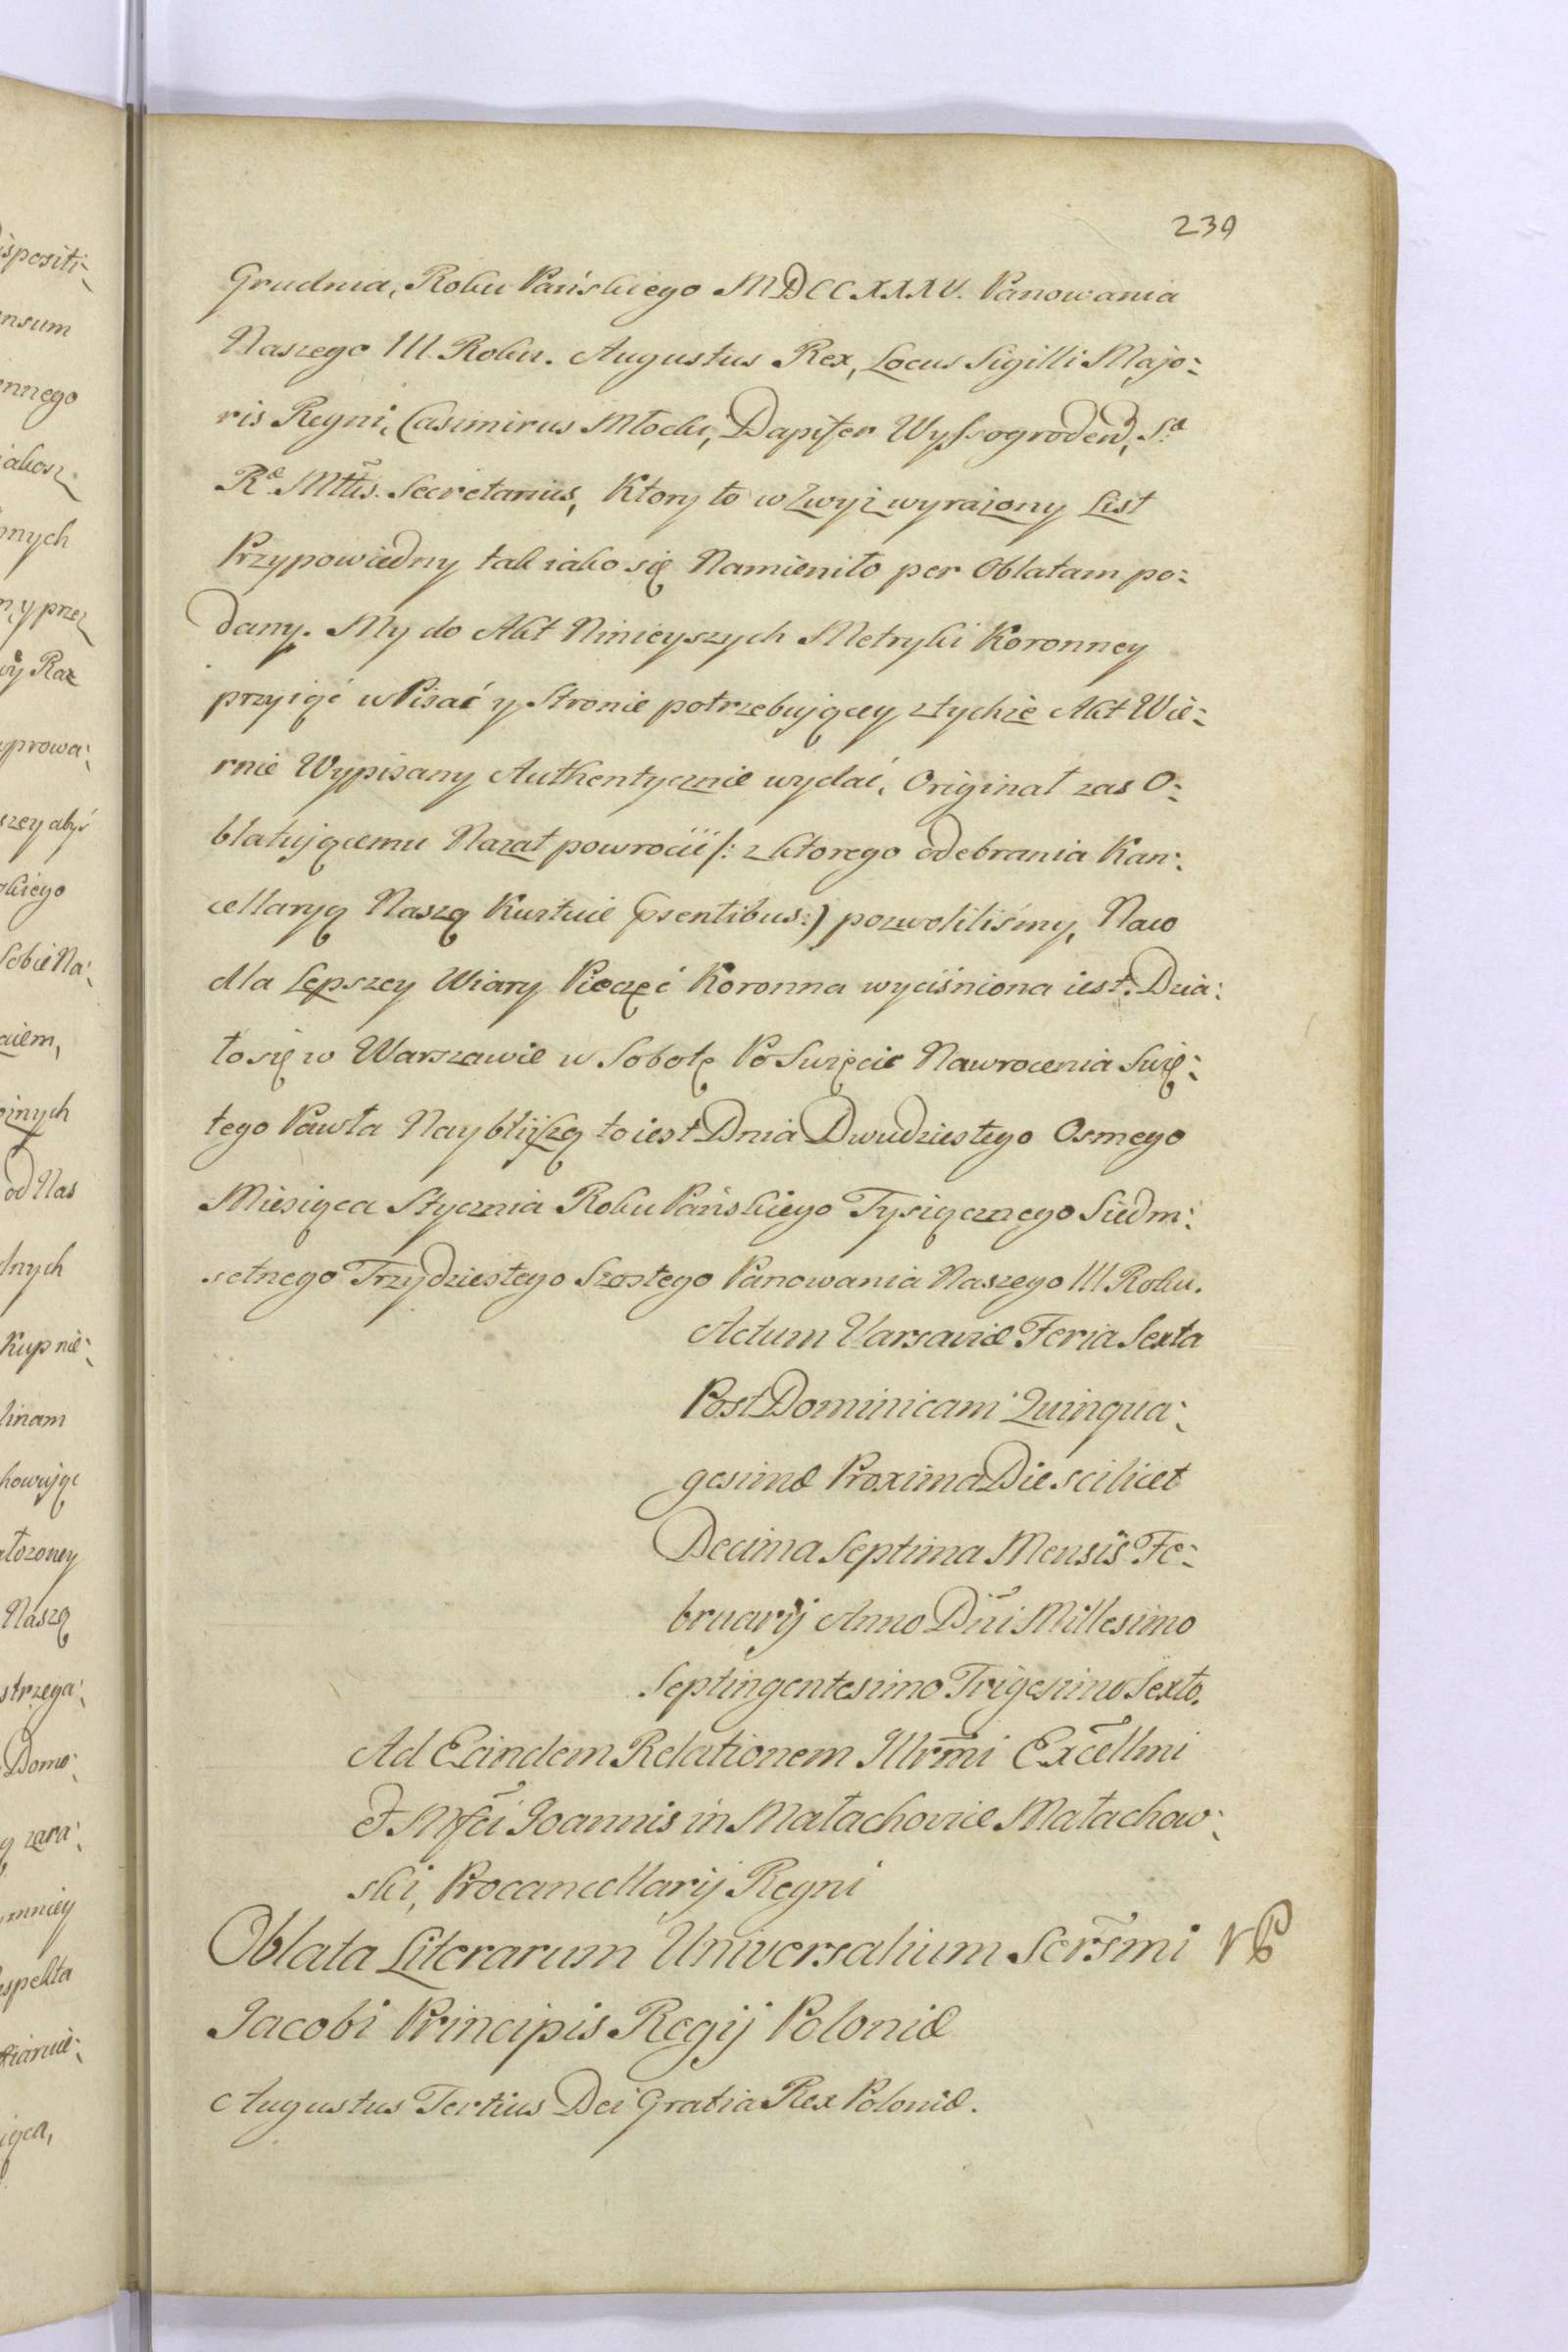 239
Grudnia, Roku Pańskiego MDCCXXXV. Panowania
Naszego III Roku. Augustus Rex, Locus Sigilli Majo:
ris Regni, Casimirus Młocki, Dapifer Wyssogroden, S:æ
R:æ Mttis. Secretarius, Ktory to wzwyż wyrażony List
Przypowiedny tak iako się Namieniło per Oblatam po:
dany. My do Akt Ninieyszych Metryki Koronney
przyiąć wPisać y Stronie potrzebuiącey z tychże Akt Wie:
rnie Wypisany Authentycznie wydać, Originał zas O:
blatuiącemu Nazat powrocić /: z ktorego odebrania Kan:
cellaryą Naszą Kwituie psentibus:) pozwoliliśmy, Naco
dla Lepszey Wiary Pieczęć Koronna wyciśniona iest. Dzia:
ło się w Warszawie w Sobotę Po Swięcie Nawrocenia Swię:
tego Pawła Naybliższą to iest Dnia Dwudziestego Osmego
Miesiąca Stycznia Roku Pańskiego Tysiącznego Siedm:
setnego Trzydziestego Szostego Panowania Naszego III Roku.
Actum Varsaviæ Feria Sexta
Post Dominicam Quinqua:
gesimæ Proxima Die scilicet
Decima Septima Mensis Fe:
bruarij Anno Dni Millesimo
Septingentesimo Trigesimo Sexto.
Ad Eandem Relationem Illrmi Excellmi
et Mfci Joannis in Małachovice Małachow:
ski, Procancellarij Regni
Oblata Literarum Universalium Serssmi
Jacobi Principis Regij Poloniæ
Augustus Tertius Dei Gratia Rex Poloniæ.
ispositi:
nsum
nnego
iakosz
nych
y przez
Raz
prowa:
szey abyś
kiego
Sobie Na:
aiem,
nych
od Nas
lnych
Kupnie:
linam
howuiąc
tozoney
Naszą
strzega:
Domo:
zara:
mniey
spekta
iąca,